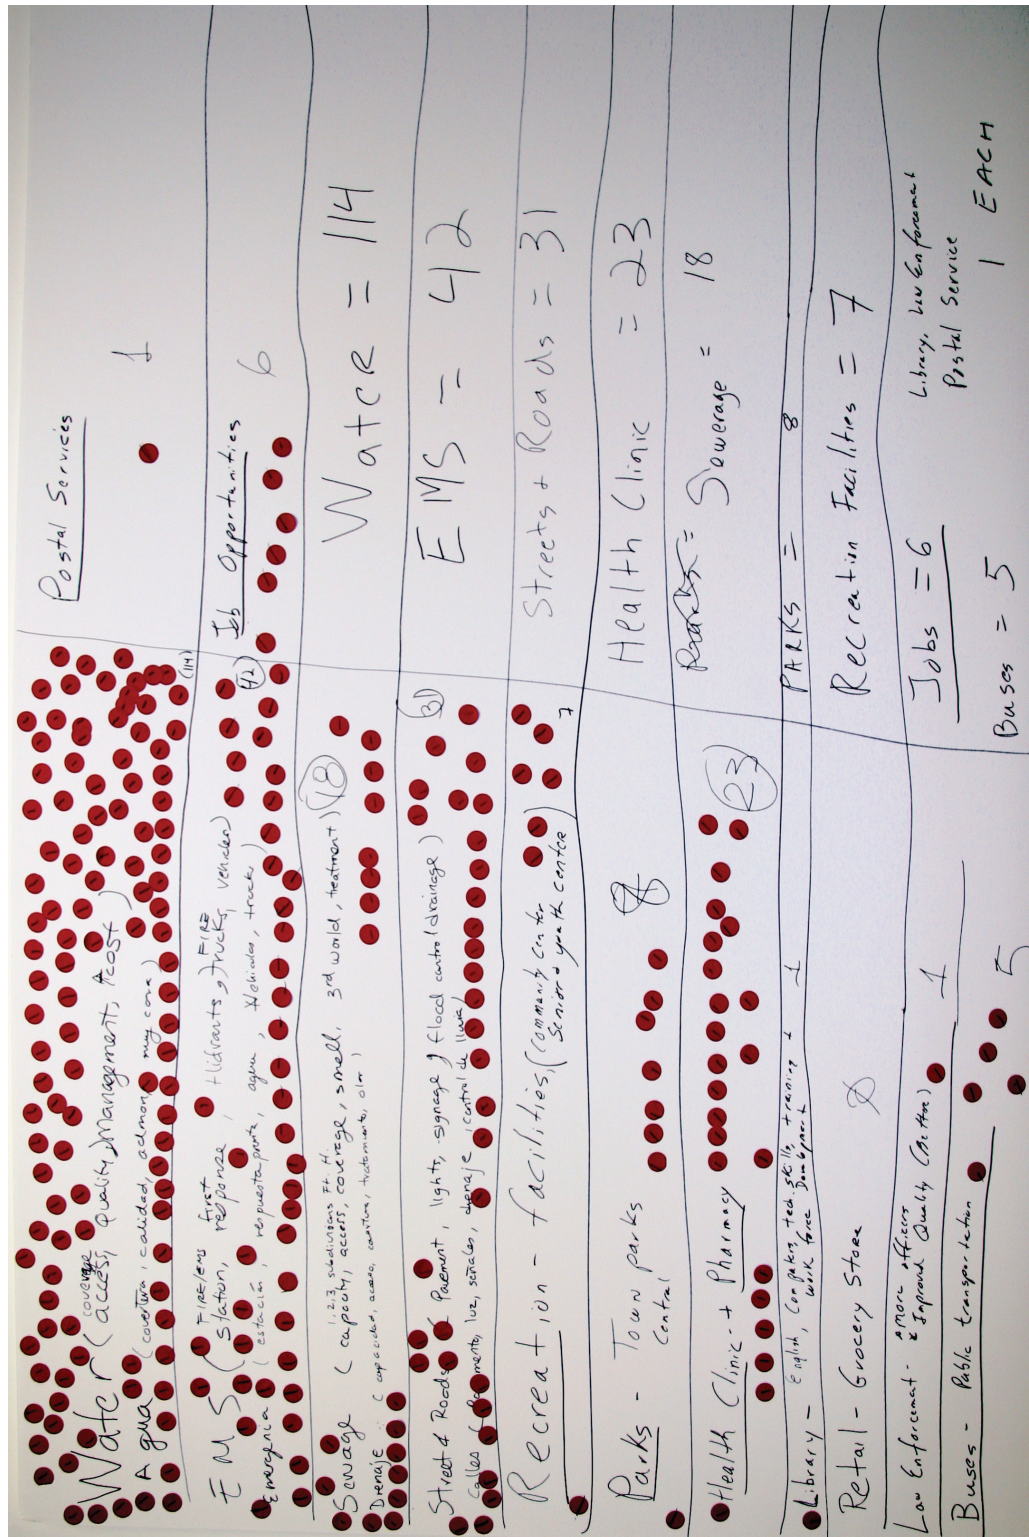 Water (access, coverage quality, management, cost)
Agua (covertura, calidad, admon, muy cara)
(114)
EMS (FIRE/EMS Station, first response, Hidrants, FIRE trucks, vehicles)
Emergencia (estación, respuesta pronta, agua, vehiculos, trucks)
42
Sewage (1,2,3, subdivisions Ft. H. capacity, access, coverage, smell, 3rd world, treatment) 18
Drenaje: (capacidad, acceso, tratamiento, olor,
Street & Roads (Pavement, lights, signage, flood control drainage)
Calles (luz, señales, drenaje, control de lluvia)
(31)
Recreation - facilities, (community center
Senior & youth center)
7
Parks - Town parks
Central
8
Health Clinic - + Pharmacy
23
Library - English, Computers, tech. skills, training +
work force Development
1
Retail - Grocery Store
0
Law Enforcement - * more officers
* Improved Quality (Better)
1
Buses - Public transportation
5
Postal Services
1
Job Opportunities
6
Water = 114
EMS = 42
Streets + Roads = 31
Health Clinic = 23
Parks =
Sewerage = 18
PARKS = 8
Recreation Facilities = 7
Jobs = 6
Buses = 5
Library, Law Enforcement
Postal Service
1 EACH